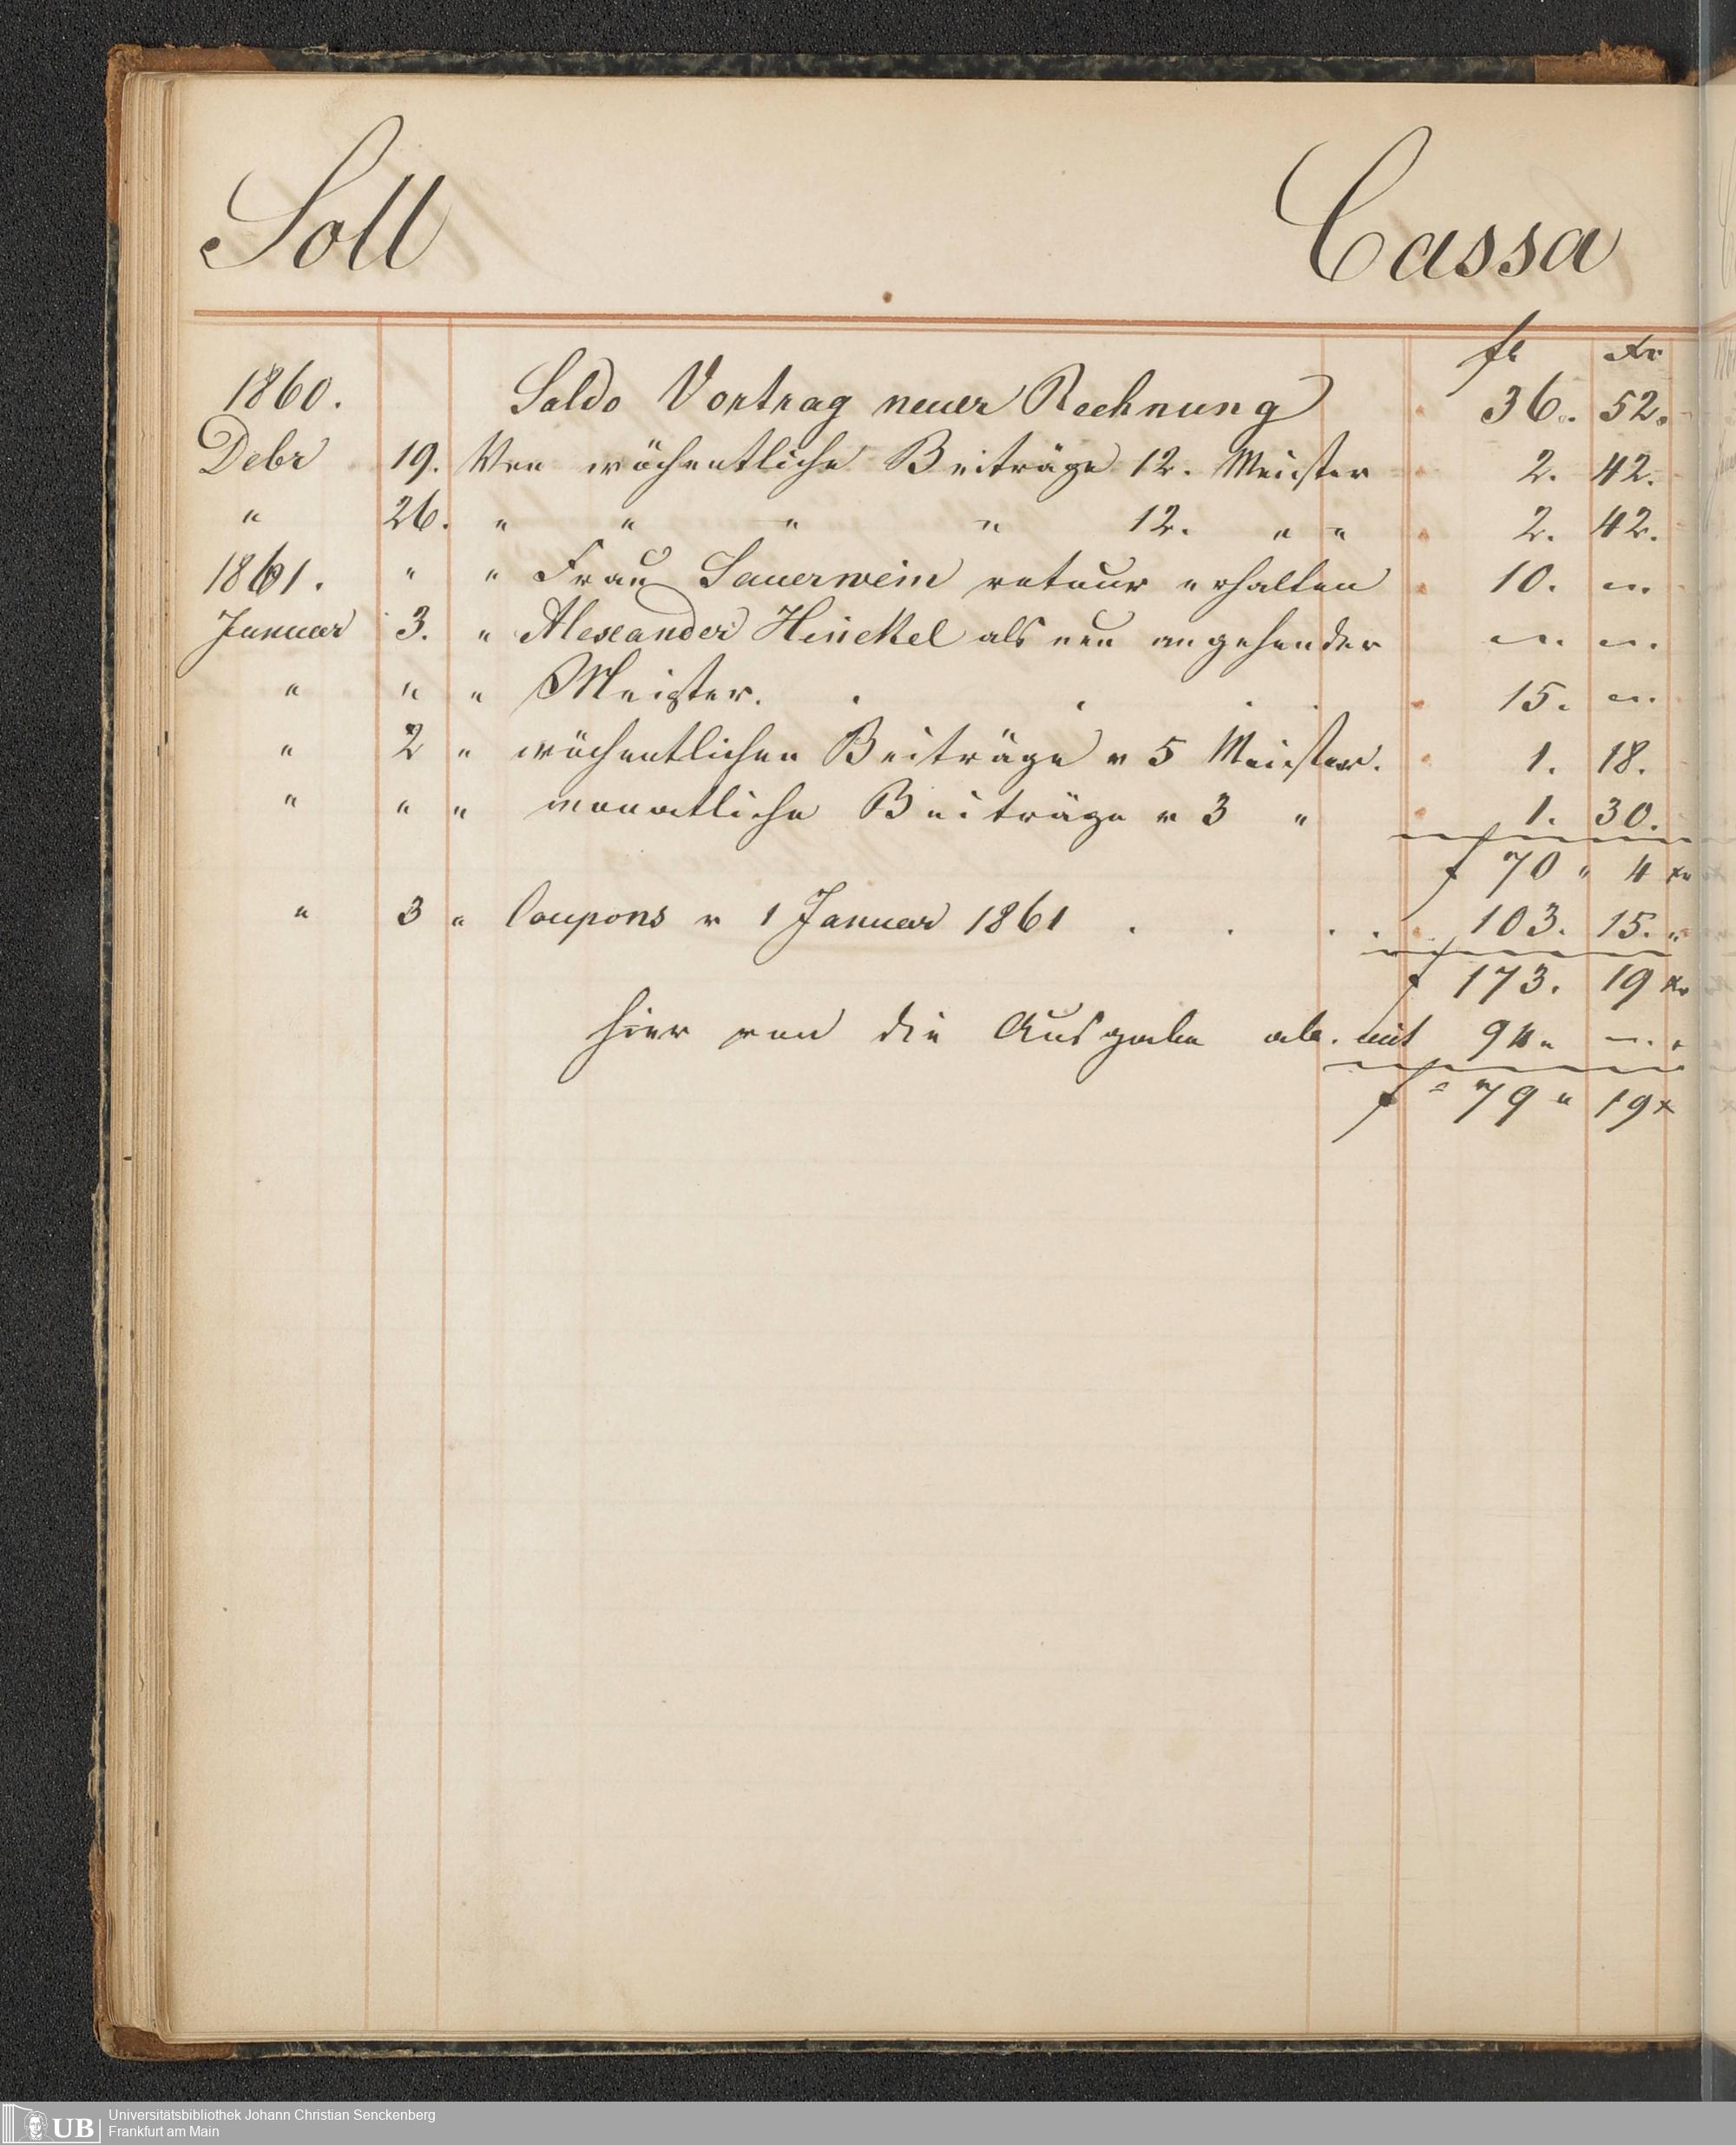 Soll Cassa
fl Xr
1860. Saldo Vortrag neuer Rechnung 36. 52.
Debr 19. Von wöchentliche Beiträge 12. Meister 2. 42.
" 26. " " " " 12. " " 2. 42.
1861. " " Frau Sauerwein retour erhalten 10. —.
Januar 3. " Alexander Hinckel als neu angehender —. —.
" " " Meister. . . . . 15. —.
" 2 " wöchentlichen Beiträge v 5 Meister. 1. 18.
" " " monatliche Beiträge v 3 " 1. 30.
f 70 " 4 Xr
" 3 " Coupons v 1 Januar 1861 . . . . 103. 15. "
f 173. 19 Xr
hier von die Ausgabe ab. mit 94 " —. "
f 79 " 19 x
UB Universitätsbibliothek Johann Christian Senckenberg
Frankfurt am Main